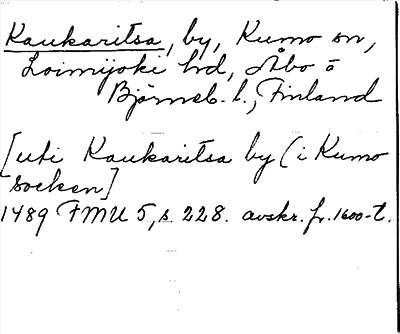 Kaukaritsa, by, Kumo sn,
Loimijoki hd, Åbo o
Björneb. l., Finland
[uti Kaukaritsa by (i Kumo
socken]
1489 FMU 5, s. 228. avskr. fr. 1600-t.